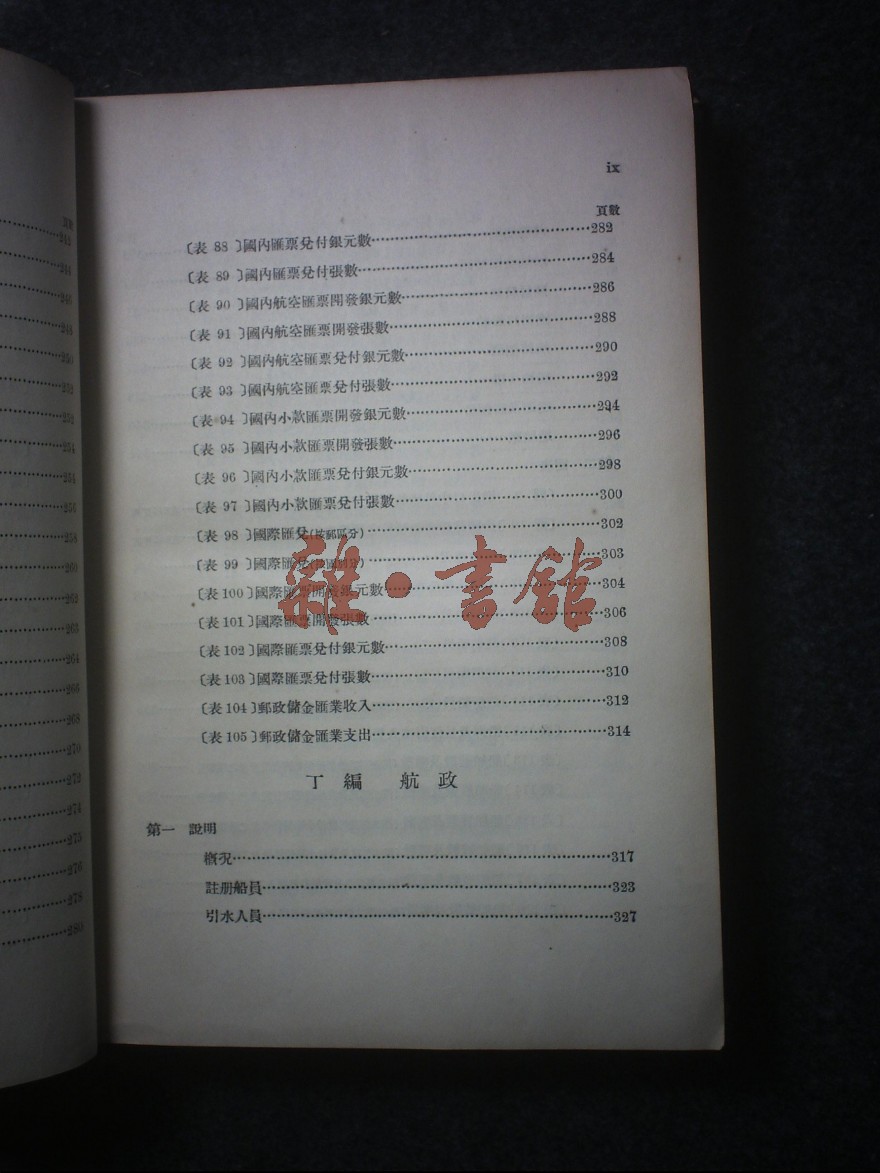 ix
頁數
〔表 88〕國內匯票兌付銀元數……282
〔表 89〕國內匯票兌付張數……284
〔表 90〕國內航空匯票開發銀元數……286
〔表 91〕國內航空匯票開發張數……288
〔表 92〕國內航空匯票兌付銀元數……290
〔表 93〕國內航空匯票兌付張數……292
〔表 94〕國內小款匯票開發銀元數……294
〔表 95〕國內小款匯票開發張數……296
〔表 96〕國內小款匯票兌付銀元數……298
〔表 97〕國內小款匯票兌付張數……300
〔表 98〕國際匯兌(按郵區分)……302
〔表 99〕國際匯兌(按國別分)……303
〔表 100〕國際匯票開發銀元數……304
〔表 101〕國際匯票開發張數……306
〔表 102〕國際匯票兌付銀元數……308
〔表 103〕國際匯票兌付張數……310
〔表 104〕郵政儲金匯業收入……312
〔表 105〕郵政儲金匯業支出……314
丁編 航政
第一 說明
概況……317
註册船員……323
引水人員……327
雜·書館